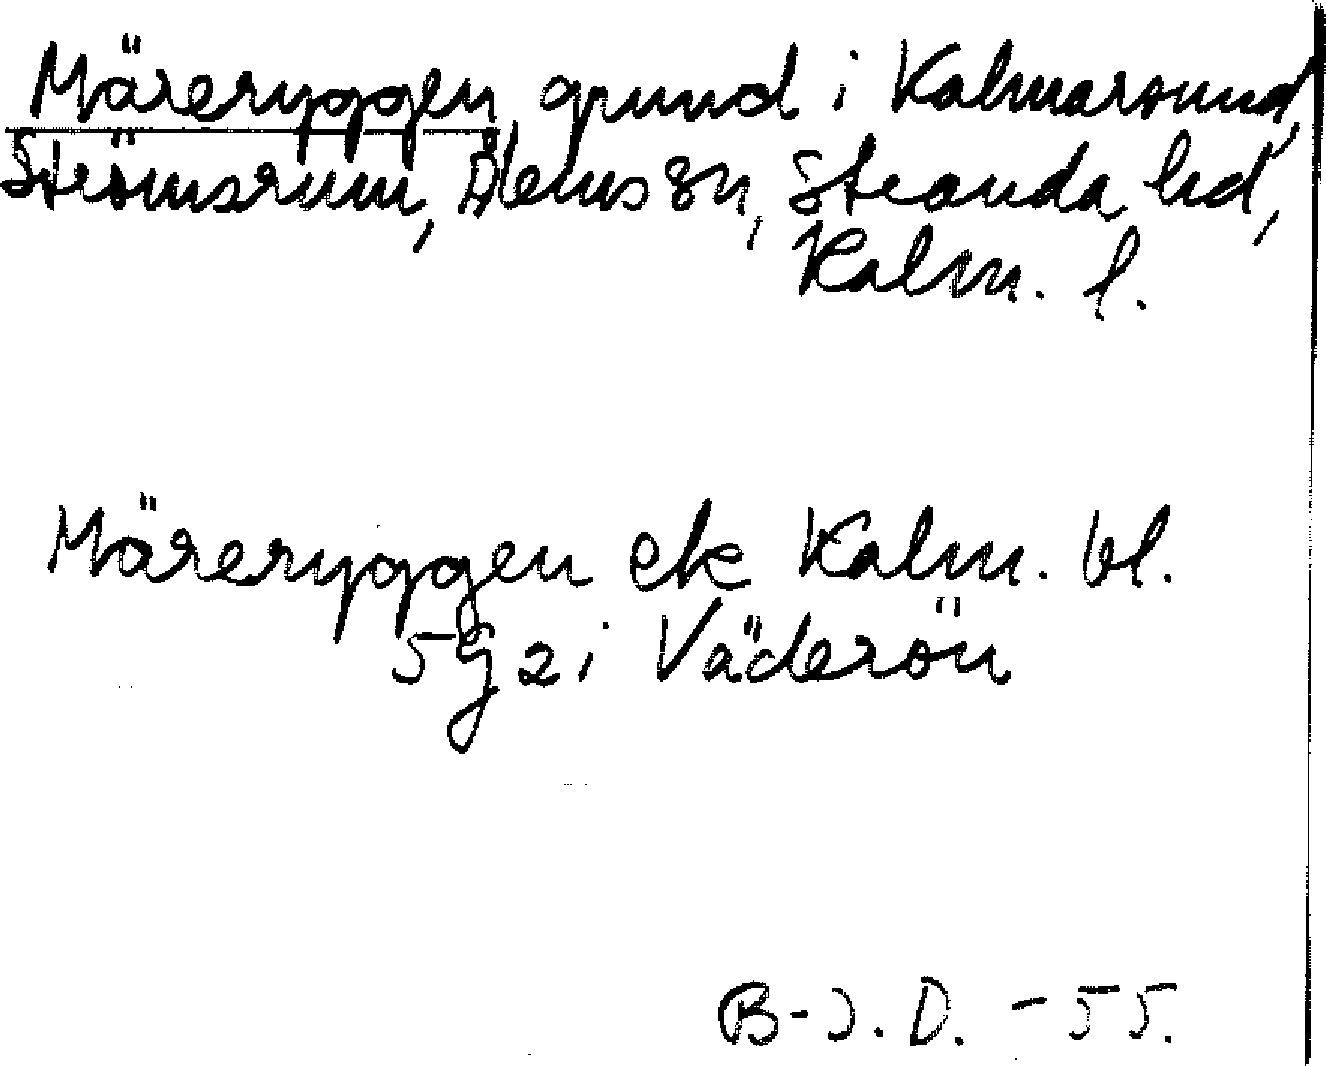 Märeryggen, grund i Kalmarsund,
Strömsrum, Ålems sn, Stranda hd,
Kalm. l.
Märeryggen ek Kalm. bl.
5 G 2 i Väderön
B-J. D. -55.